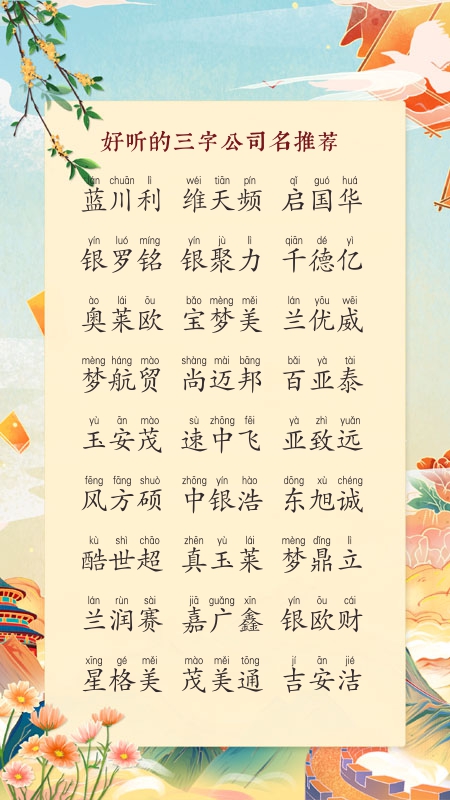 好听的三字公司名推荐
lán chuān lì wéi tiān pín qǐ guó huá
蓝川利 维天频 启国华
yín luó míng yín jù lì qiān dé yì
银罗铭 银聚力 千德亿
ào lái ōu bǎo mèng měi lán yōu wēi
奥莱欧 宝梦美 兰优威
mèng háng mào shàng mài bāng bǎi yà tài
梦航贸 尚迈邦 百亚泰
yù ān mào sù zhōng fēi yà zhì yuǎn
玉安茂 速中飞 亚致远
fēng fāng shuò zhōng yín hào dōng xù chéng
风方硕 中银浩 东旭诚
kù shì chāo zhēn yù lái mèng dǐng lì
酷世超 真玉莱 梦鼎立
lán rùn sài jiā guǎng xīn yín ōu cái
兰润赛 嘉广鑫 银欧财
xīng gé měi mào měi tōng jí ān jié
星格美 茂美通 吉安洁